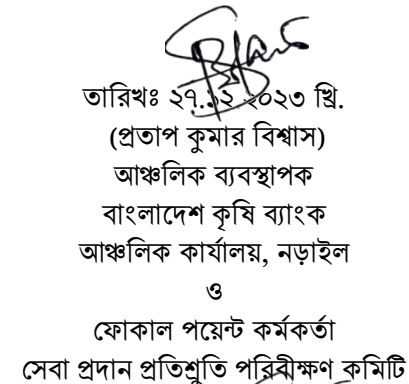 তারিখঃ ২৭.১২.২০২৩ খ্রি.
(প্রতাপ কুমার বিশ্বাস)
আঞ্চলিক ব্যবস্থাপক
বাংলাদেশ কৃষি ব্যাংক
আঞ্চলিক কার্যালয়, নড়াইল
ও
ফোকাল পয়েন্ট কর্মকর্তা
সেবা প্রদান প্রতিশ্রুতি পরিবীক্ষণ কমিটি